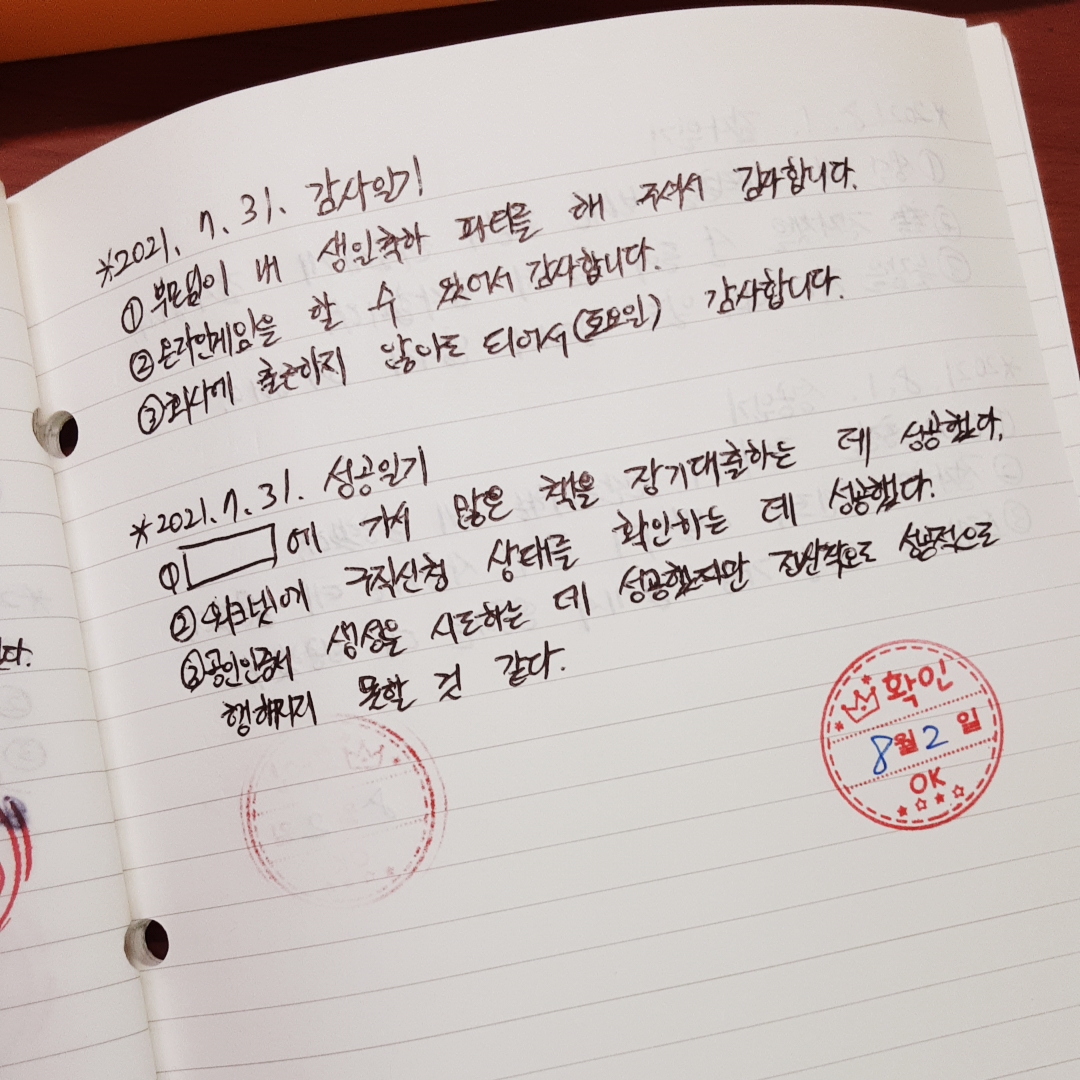 *2021. 7. 31. 감사일기
① 부모님이 내 생일축하 파티를 해 주셔서 감사합니다.
② 온라인게임을 할 수 있어서 감사합니다.
③ 회사에 출근하지 않아도 되어서(토요일) 감사합니다.
*2021. 7. 31. 성공일기
① 에 가서 많은 책을 장기대출하는 데 성공했다.
② 워크넷에 구직신청 상태를 확인하는 데 성공했다.
③ 공인인증서 생성을 시도하는 데 성공했지만 전산적으로 성공적으로
행해지지 못할 것 같다.
확인
8월 2일
OK